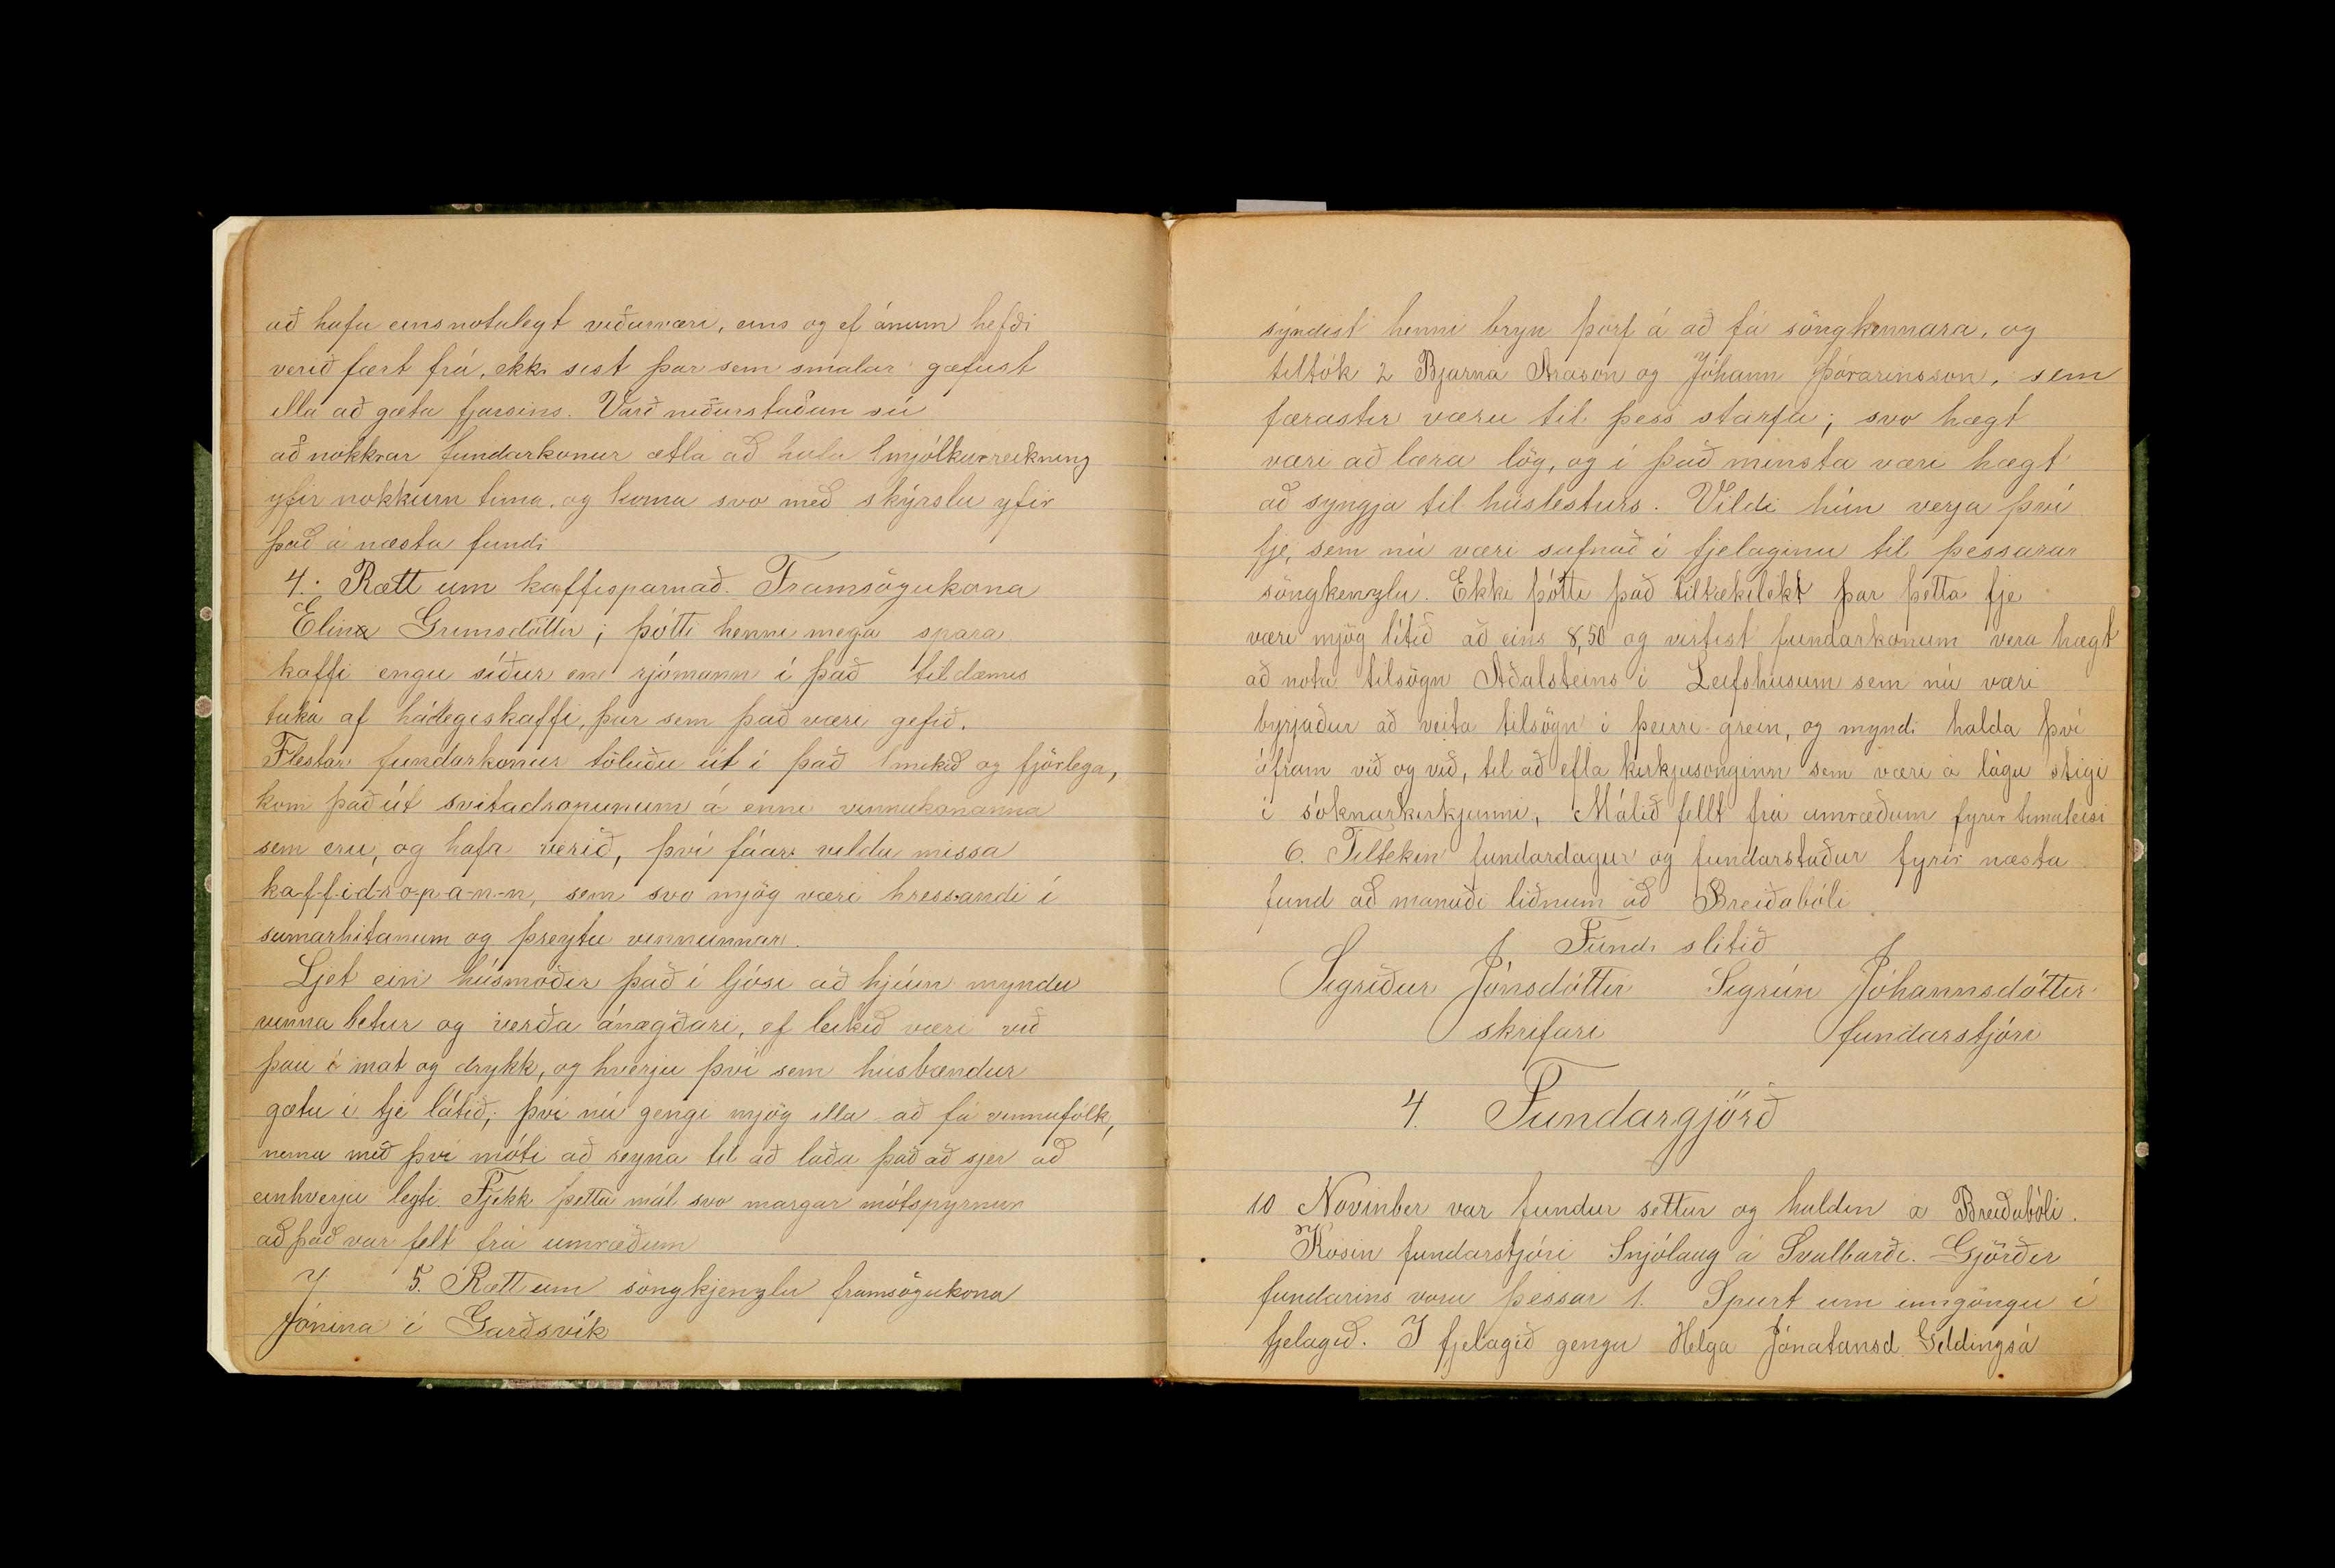 að hafa eins notalegt viðurværi, eins og ef ánum hefði
verið fært frá, ekki sist þar sem smalar gæfust
illa að gæta fjarsins. Varð niðurstaðan sú
að nokkrar fundarkonur ætla að hafa mjólkurreikning
yfir nokkurn tima, og koma svo með skýrslu yfir
það á næsta fundi
4. Rætt um kaffisparnað. Framsögukona
Elina Grimsdóttir; þótti henni mega spara
kaffi engu síður en rjómann í það tildæmis
taka af hádegiskaffi, þar sem það væri gefið.
Flestar fundarkonur töluðu út í það mikið og fjörlega,
kom það út svitadropunum á enni vinnukonanna
sem eru, og hafa verið, því fáar vildu missa
ka-f-f-i-d-r-o-p-a-n-n, sem svo mjög væri hressandi í
sumarhitanum og þreytu vinnunnar.
Ljet ein húsmóðir það í ljósi að hjúin myndu
vinna betur og verða ánægðari, ef leikið væri við
þau í mat og drykk, og hverju því sem húsbændur
gætu í tje látið; því nú gengi mjög illa að fá vinnufólk,
nema með því móti að reyna til að laða það að sjer að
einhverju leyti. Fjekk þetta mál svo margar mótspyrnur
að það var felt frá umræðum
5. Rætt um söngkjenzlu framsögukona
Jónina í Garðsvík
sýndist henni bryn þörf á að fá söngkennara, og
tiltók 2 Bjarna Arason og Jóhann Þórarinsson, sem
færastir væru til þess starfa; svo hægt
væri að læra lög, og í það minsta væri hægt
að syngja til húslesturs. Vildi hún verja því
fje, sem nú væri safnað í fjelaginu til þessarar
söngkenzlu. Ekki þótti það tiltækilekt þar þetta fje
væri mjög lítið að eins 8,50 og virtist fundarkonum vera hægt
að nota tilsögn Aðalsteins í Leifshúsum sem nú væri
byrjaður að veita tilsögn í þeirri grein, og myndi halda því
áfram við og við, til að efla kirkjusönginn sem væri á lágu stigi
í sóknarkirkjunni, Málið fellt frá umræðum fyrir timaleisi
6. Tiltekin fundardagur og fundarstaður fyrir næsta
fund að manuði liðnum að Breiðabóli
Fundi slitið
Sigriður Jónsdóttir Sigrún Jóhannsdóttir
skrifari fundarstjóri
4. Fundargjörð
10 Novinber var fundur settur og haldin á Breiðabóli.
Kosin fundarstjóri Snjólaug á Svalbarði. Gjörðir
fundarins voru þessar 1. Spurt um inngöngu í
fjelagið. I fjelagið gengu Helga Jónatansd. Geldingsá